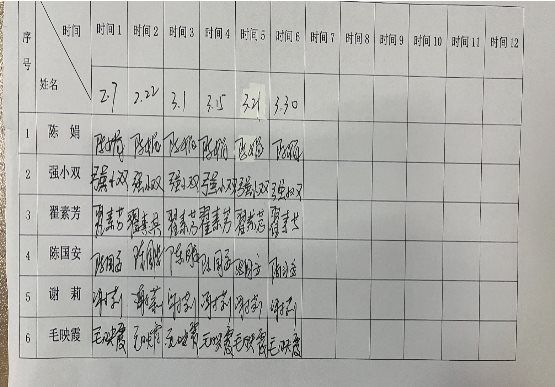 序号 时间 姓名 时间1 时间2 时间3 时间4 时间5 时间6 时间7 时间8 时间9 时间10 时间11 时间12
2.7 2.22 3.1 3.15 3.21 3.30
1 陈娟 陈娟 陈娟 陈娟 陈娟 陈娟 陈娟
2 强小双 强小双 强小双 强小双 强小双 强小双 强小双
3 翟素芳 翟素芳 翟素芳 翟素芳 翟素芳 翟素芳 翟素芳
4 陈国安 陈国安 陈国安 陈国安 陈国安 陈国安 陈国安
5 谢莉 谢莉 谢莉 谢莉 谢莉 谢莉 谢莉
6 毛映霞 毛映霞 毛映霞 毛映霞 毛映霞 毛映霞 毛映霞